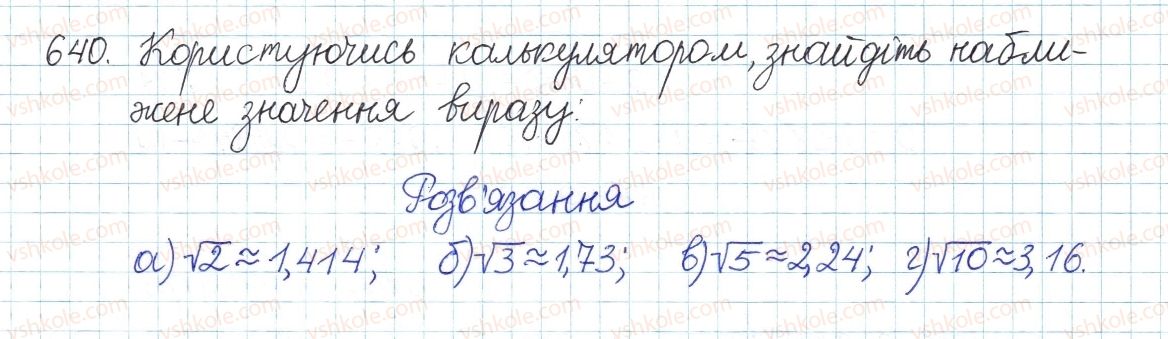 640. Користуючись калькулятором, знайдіть набли-
жене значення виразу:
Розв'язання
а) √2 ≈ 1,414; б) √3 ≈ 1,73; в) √5 ≈ 2,24; г) √10 ≈ 3,16.